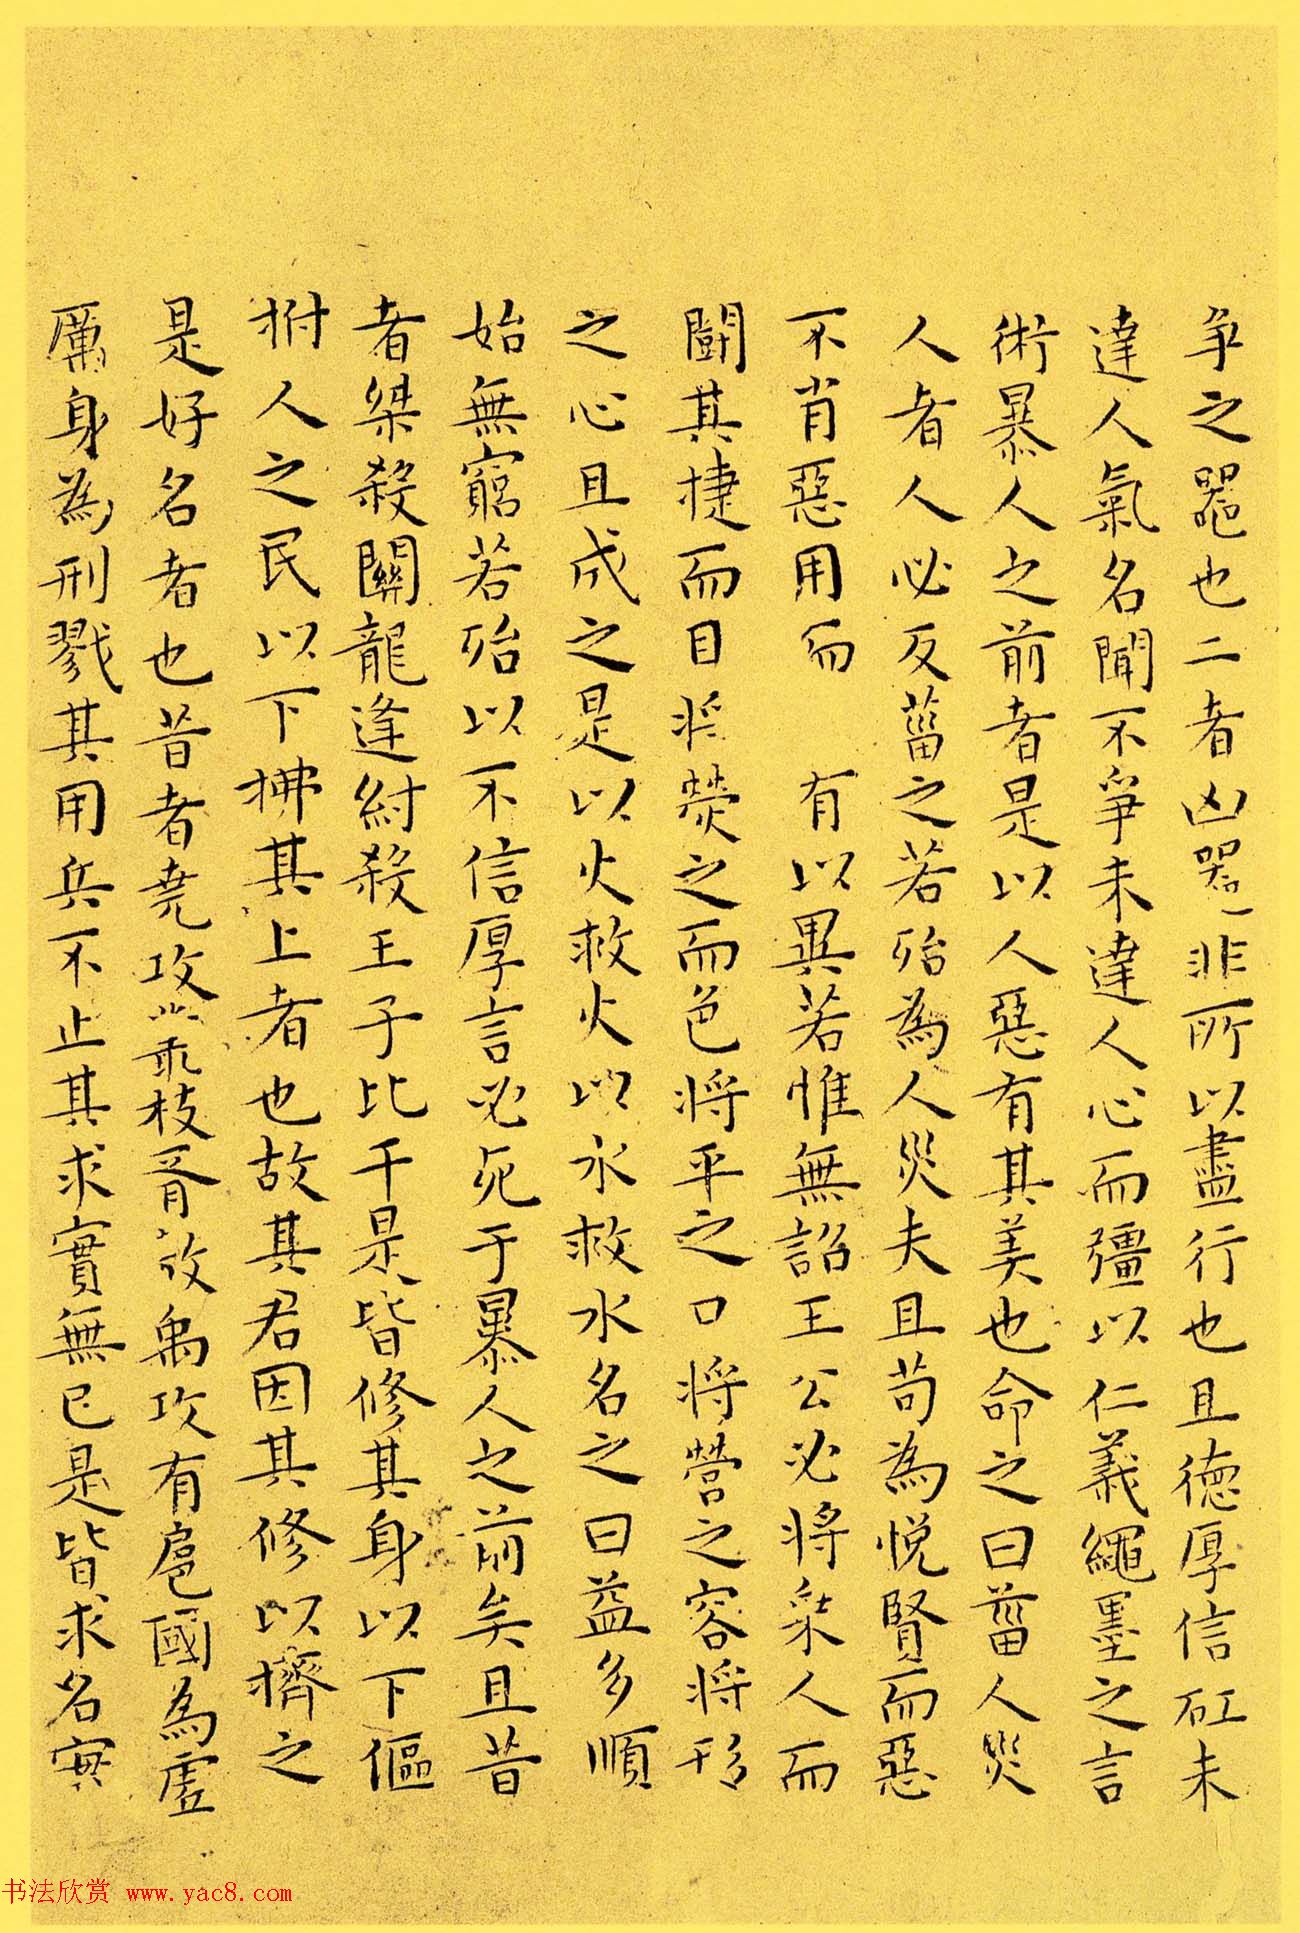 争之器也二者凶器非所以盡行也且德厚信矼未
達人氣名聞不爭未達人心而彊以仁義繩墨之言
術暴人之前者是以人惡有其美也命之曰菑人災
人者人必反菑之若殆為人災夫且苟為悅賢而惡
不肖惡用而 有以異若惟無詔王公必將乘人而
鬪其捷而目將熒之而色將平之口將營之容將形
之心且成之是以火救火以水救水名之曰益多順
始無窮若殆以不信厚言必死于暴人之前矣且昔
者桀殺關龍逢紂殺王子比干是皆修其身以下傴
拊人之民以下拂其上者也故其君因其修以擠之
是好名者也昔者堯攻叢枝胥敖禹攻有扈國為虛
厲身為刑戮其用兵不止其求實無已是皆求名實
书法欣赏 www.yac8.com